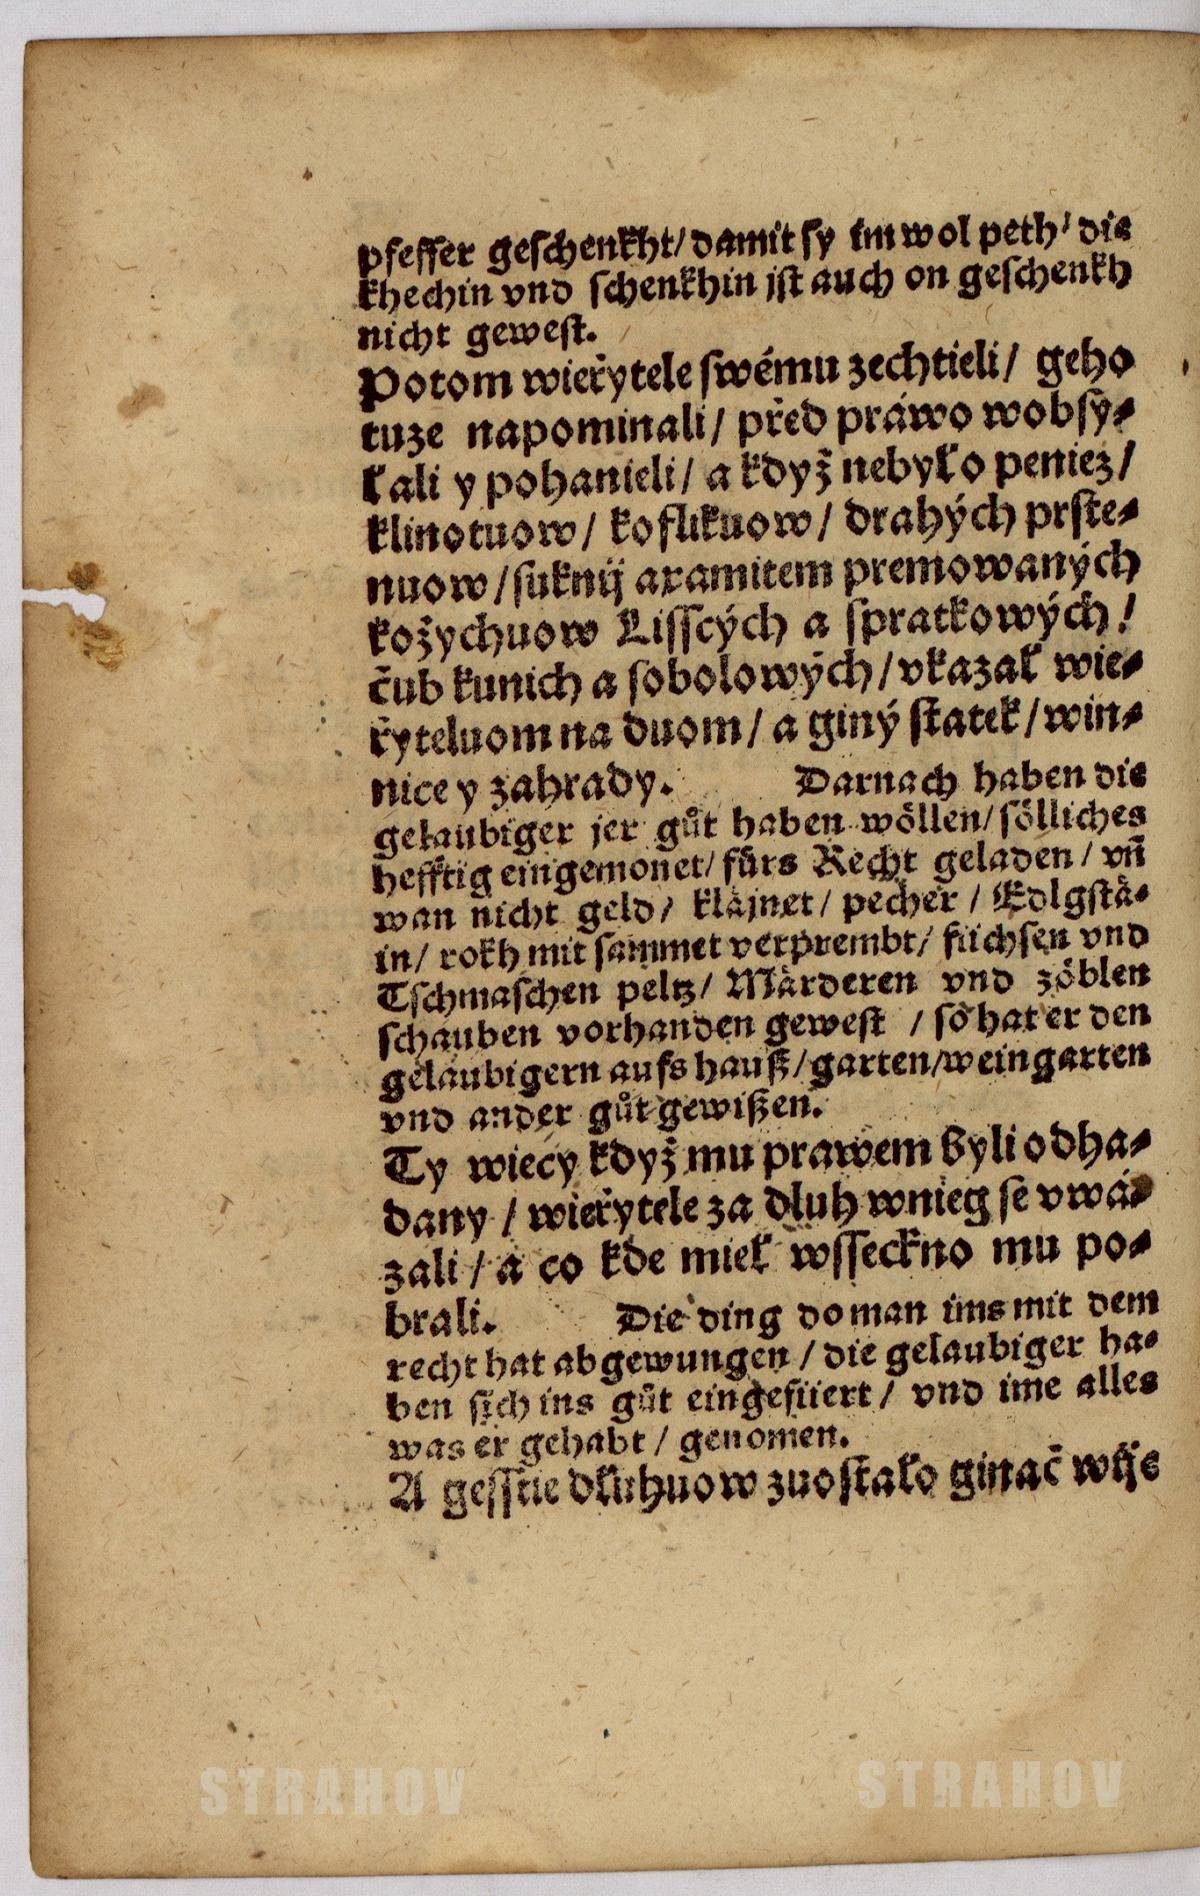 pfeffer geſchenkht/ damit ſy im wol peth/ die
khechin vnd ſchenkhin jſt auch on geſchenkh
nicht geweſt.
Potom wieřytele ſwému zechtieli/ geho
tuze napominali/ před práwo wobſy⸗
łali y pohanieli/ a když nebyło peniez/
klinotuow/ koflikuow/ drahých prſte⸗
nuow/ ſuknij axamitem premowaných
kožychuow Liſſcých a ſpratkowých/
čub kunich a ſobolowých/ vkazał wie⸗
řyteluom na duom/ a giný ſtatek/ win⸗
nice y zahrady. Darnach haben die
gelaubiger jer gůt haben wöllen/ ſölliches
hefftig eingemonet/ fürs Recht geladen/ vñ
wan nicht geld/ kläjnet/ pecher/ Edlgſtä⸗
in/ rokh mit ſammet verprembt/ füchſen vnd
Tſchmaſchen peltz/ Märderen vnd zöblen
ſchauben vorhanden geweſt / ſo hat er den
gelaubigern aufs hauß/ garten/ weingarten
vnd ander gůt gewißen.
Ty wiecy když mu prawem byli odha⸗
dany / wieřytele za dluh wnieg ſe vwá⸗
zali / a co kde mieł wſſeckno mu po⸗
brali. Die ding do man ims mit dem
recht hat abgewungen / die gelaubiger ha⸗
ben ſich ins gůt eingefüert / vnd ime alles
was er gehabt / genomen.
A geſſtie dłuhuow zuoſtało ginač wijc
STRAHOV STRAHOV